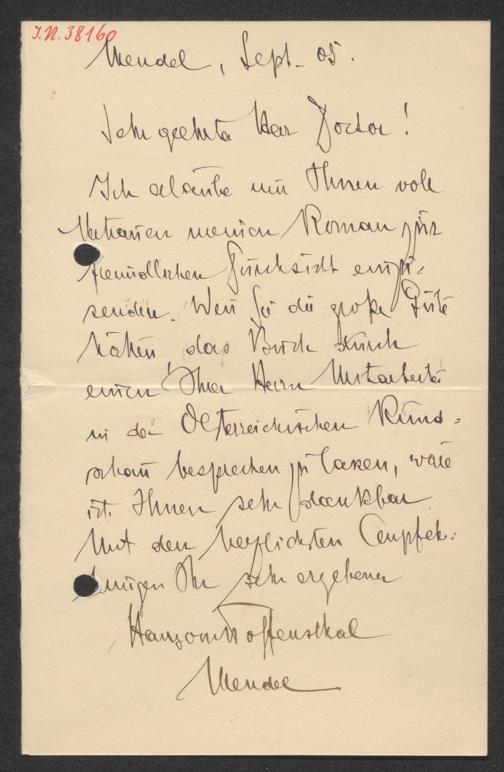 I.N. 38160
Mendel, Sept. 05.
Sehr geehrter Herr Doctor!
Ich erlaube mir Ihnen voll
Vertrauen meinen Roman zur
freundlichen Durchsicht einzu-
senden. Wenn Sie die große Güte
hätten, das Buch durch
einen Ihrer Herrn Mitarbeiter
in der Oesterreichischen Rund-
schau besprechen zu lassen, wäre
ich Ihnen sehr dankbar
Mit den herzlichsten Empfeh-
lungen Ihr sehr ergebener
Hans von Hoffensthal
Mendel